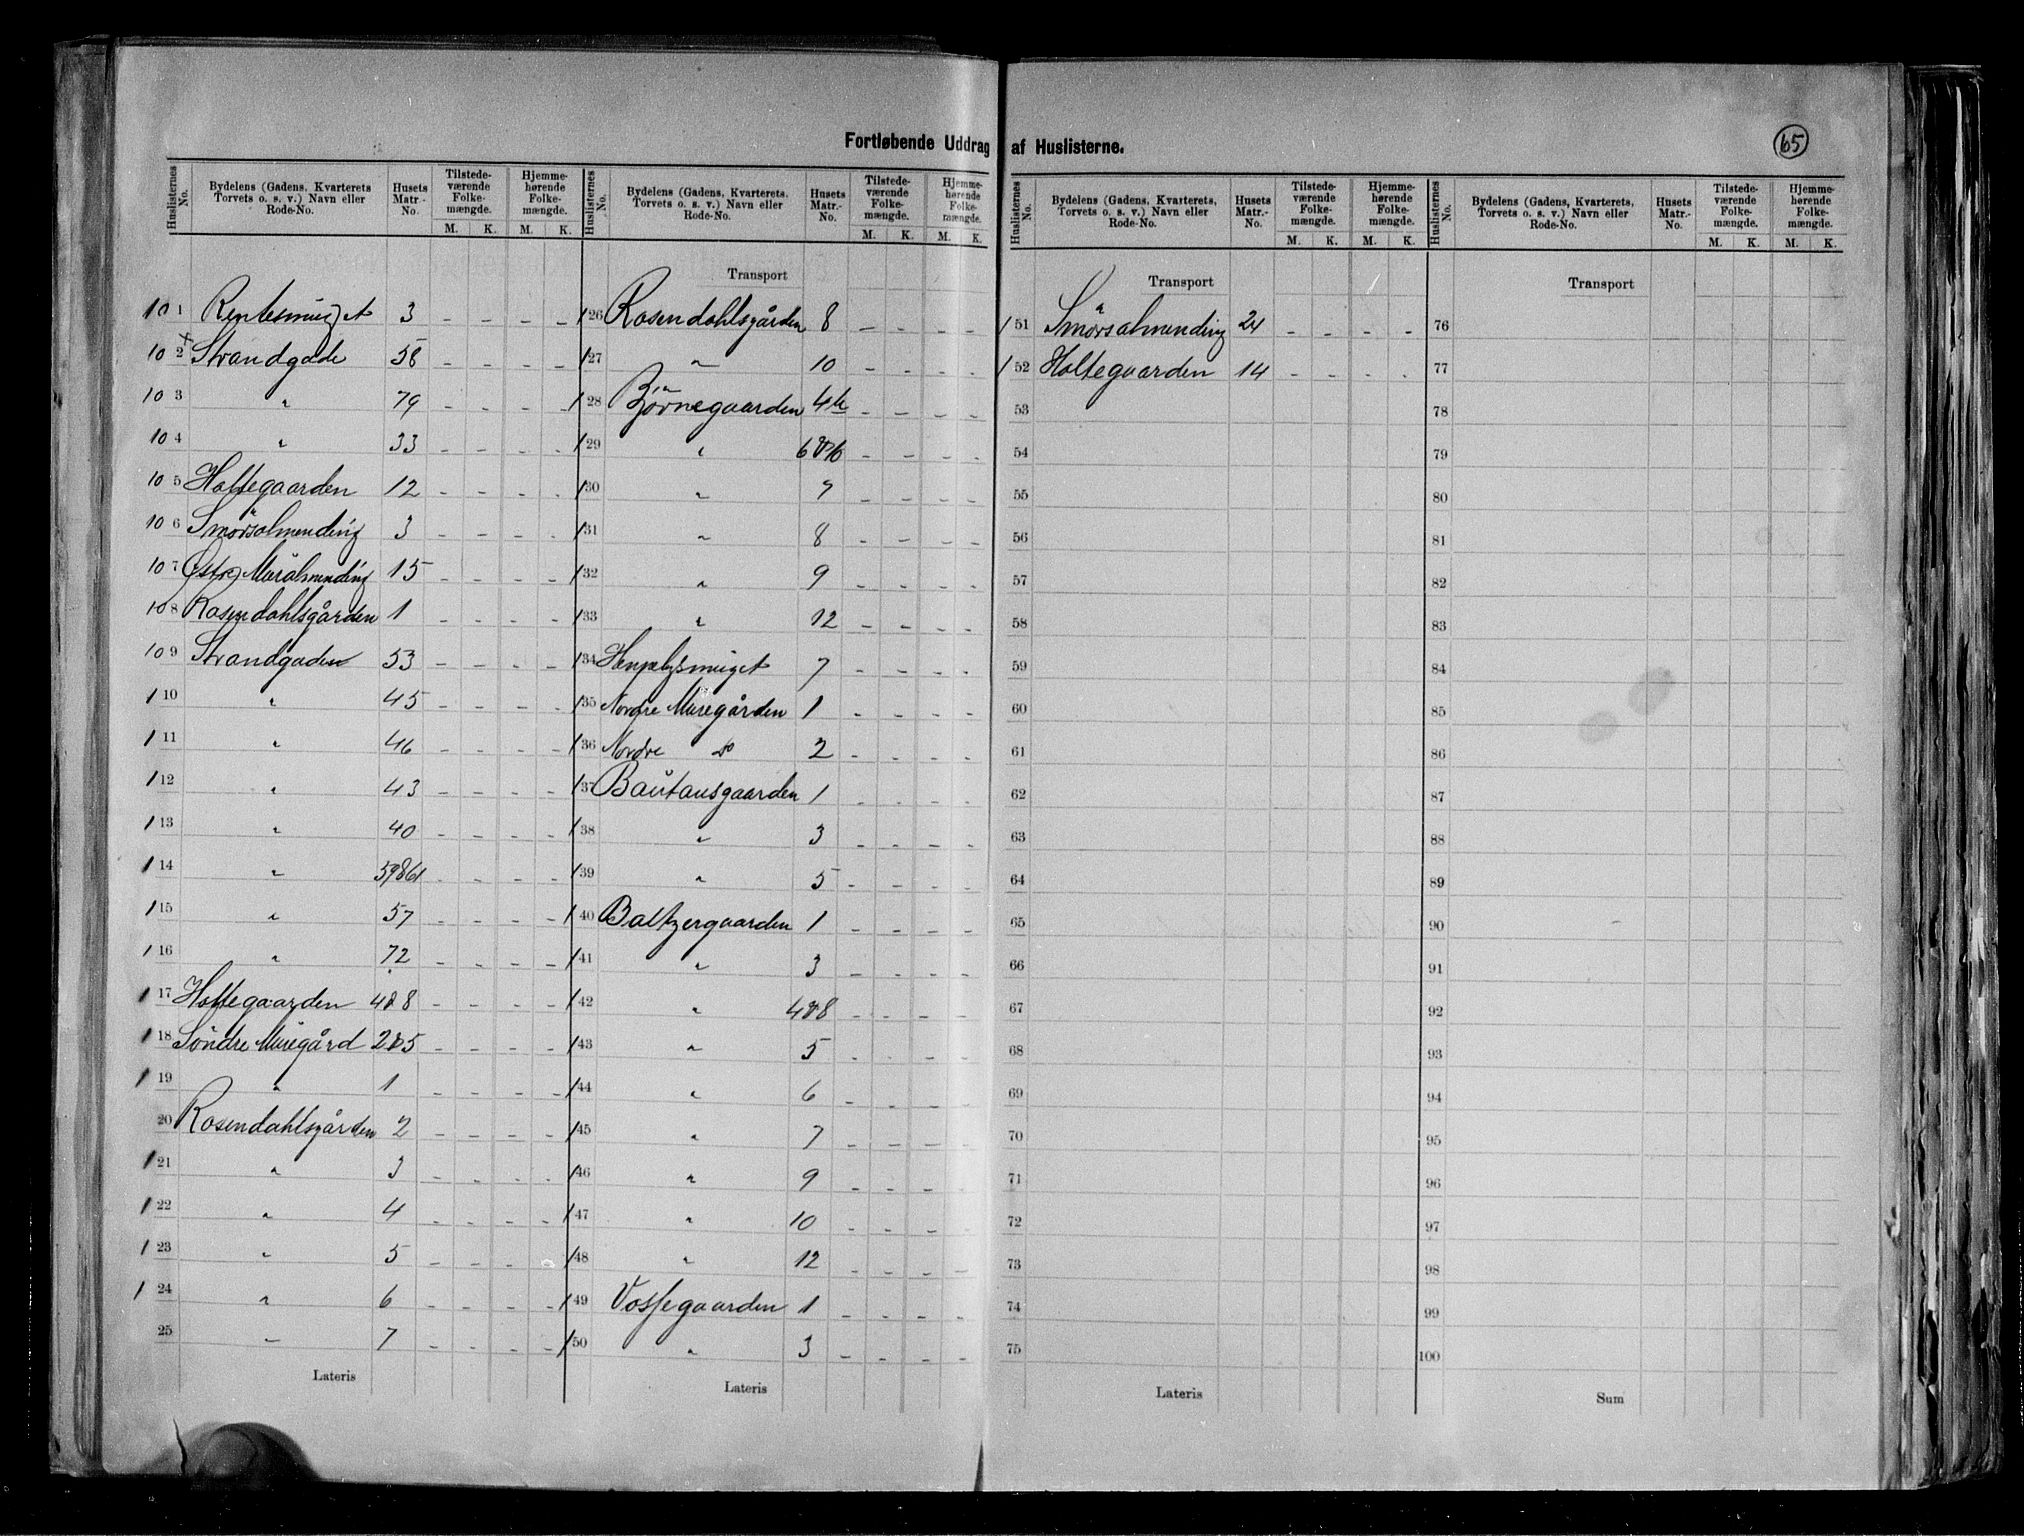 Fortløbende Uddrag af Huslisterne.
65
Huslisternes No. Bydelens (Gadens, Kvarterets Torvets o. s. v.) Navn eller Rode-No. Husets Matr.-No. Tilstede-værende Folke-mængde. M. K. Hjemme-hørende Folke-mængde. M. K.
10 1 3
10 2 Strandgade 58
10 3 " 79
10 4 " 33
10 5 Holtegaarden 12
10 6 Smørsalmending 3
10 7 Østre Muralmending 15
10 8 Rosendahlsgården 1
10 9 Strandgaden 53
1 10 " 45
1 11 " 46
1 12 " 43
1 13 " 40
1 14 "
1 15 " 57
1 16 " 72
1 17 Holtegaarden 4&8
1 18 Søndre Muregård 2&5
1 19 " 1
20 Rosendahlsgården 2
1 21 " 3
1 22 " 4
1 23 " 5
1 24 " 6
25 " 7
Lateris
Huslisternes No. Bydelens (Gadens, Kvarterets, Torvets o. s. v.) Navn eller Rode-No. Husets Matr.-No. Tilstede-værende Folke-mængde. M. K. Hjemme-hørende Folke-mængde. M. K.
Transport
1 26 Rosendahlsgården 8
1 27 " 10
1 28 Bjørnegaarden
1 29 "
1 30 " 7
1 31 " 8
1 32 " 9
1 33 " 12
1 34 7
1 35 Nordre Muregården 1
1 36 Nordre do 2
1 37 Bautausgaarden 1
1 38 " 3
1 39 " 5
1 40 Baltzergaarden 1
1 41 " 3
1 42 " 4&8
1 43 " 5
1 44 " 6
1 45 " 7
1 46 " 9
1 47 " 10
1 48 " 12
1 49 Vossegaarden 1
1 50 " 3
Lateris
Huslisternes No. Bydelens (Gadens, Kvarterets, Torvets o. s. v.) Navn eller Rode-No. Husets Matr.-No. Tilstede-værende Folke-mængde. M. K. Hjemme-hørende Folke-mængde. M. K.
Transport
1 51 Smørsalmending 24
1 52 Holtegaarden 14
53
54
55
56
57
58
59
60
61
62
63
64
65
66
67
68
69
70
71
72
73
74
75
Lateris
Huslisternes No. Bydelens (Gadens, Kvarterets, Torvets o. s. v.) Navn eller Rode-No. Husets Matr.-No. Tilstede-værende Folke-mængde. M. K. Hjemme-hørende Folke-mængde. M. K.
Transport
76
77
78
79
80
81
82
83
84
85
86
87
88
89
90
91
92
93
94
95
96
97
98
99
100
Sum